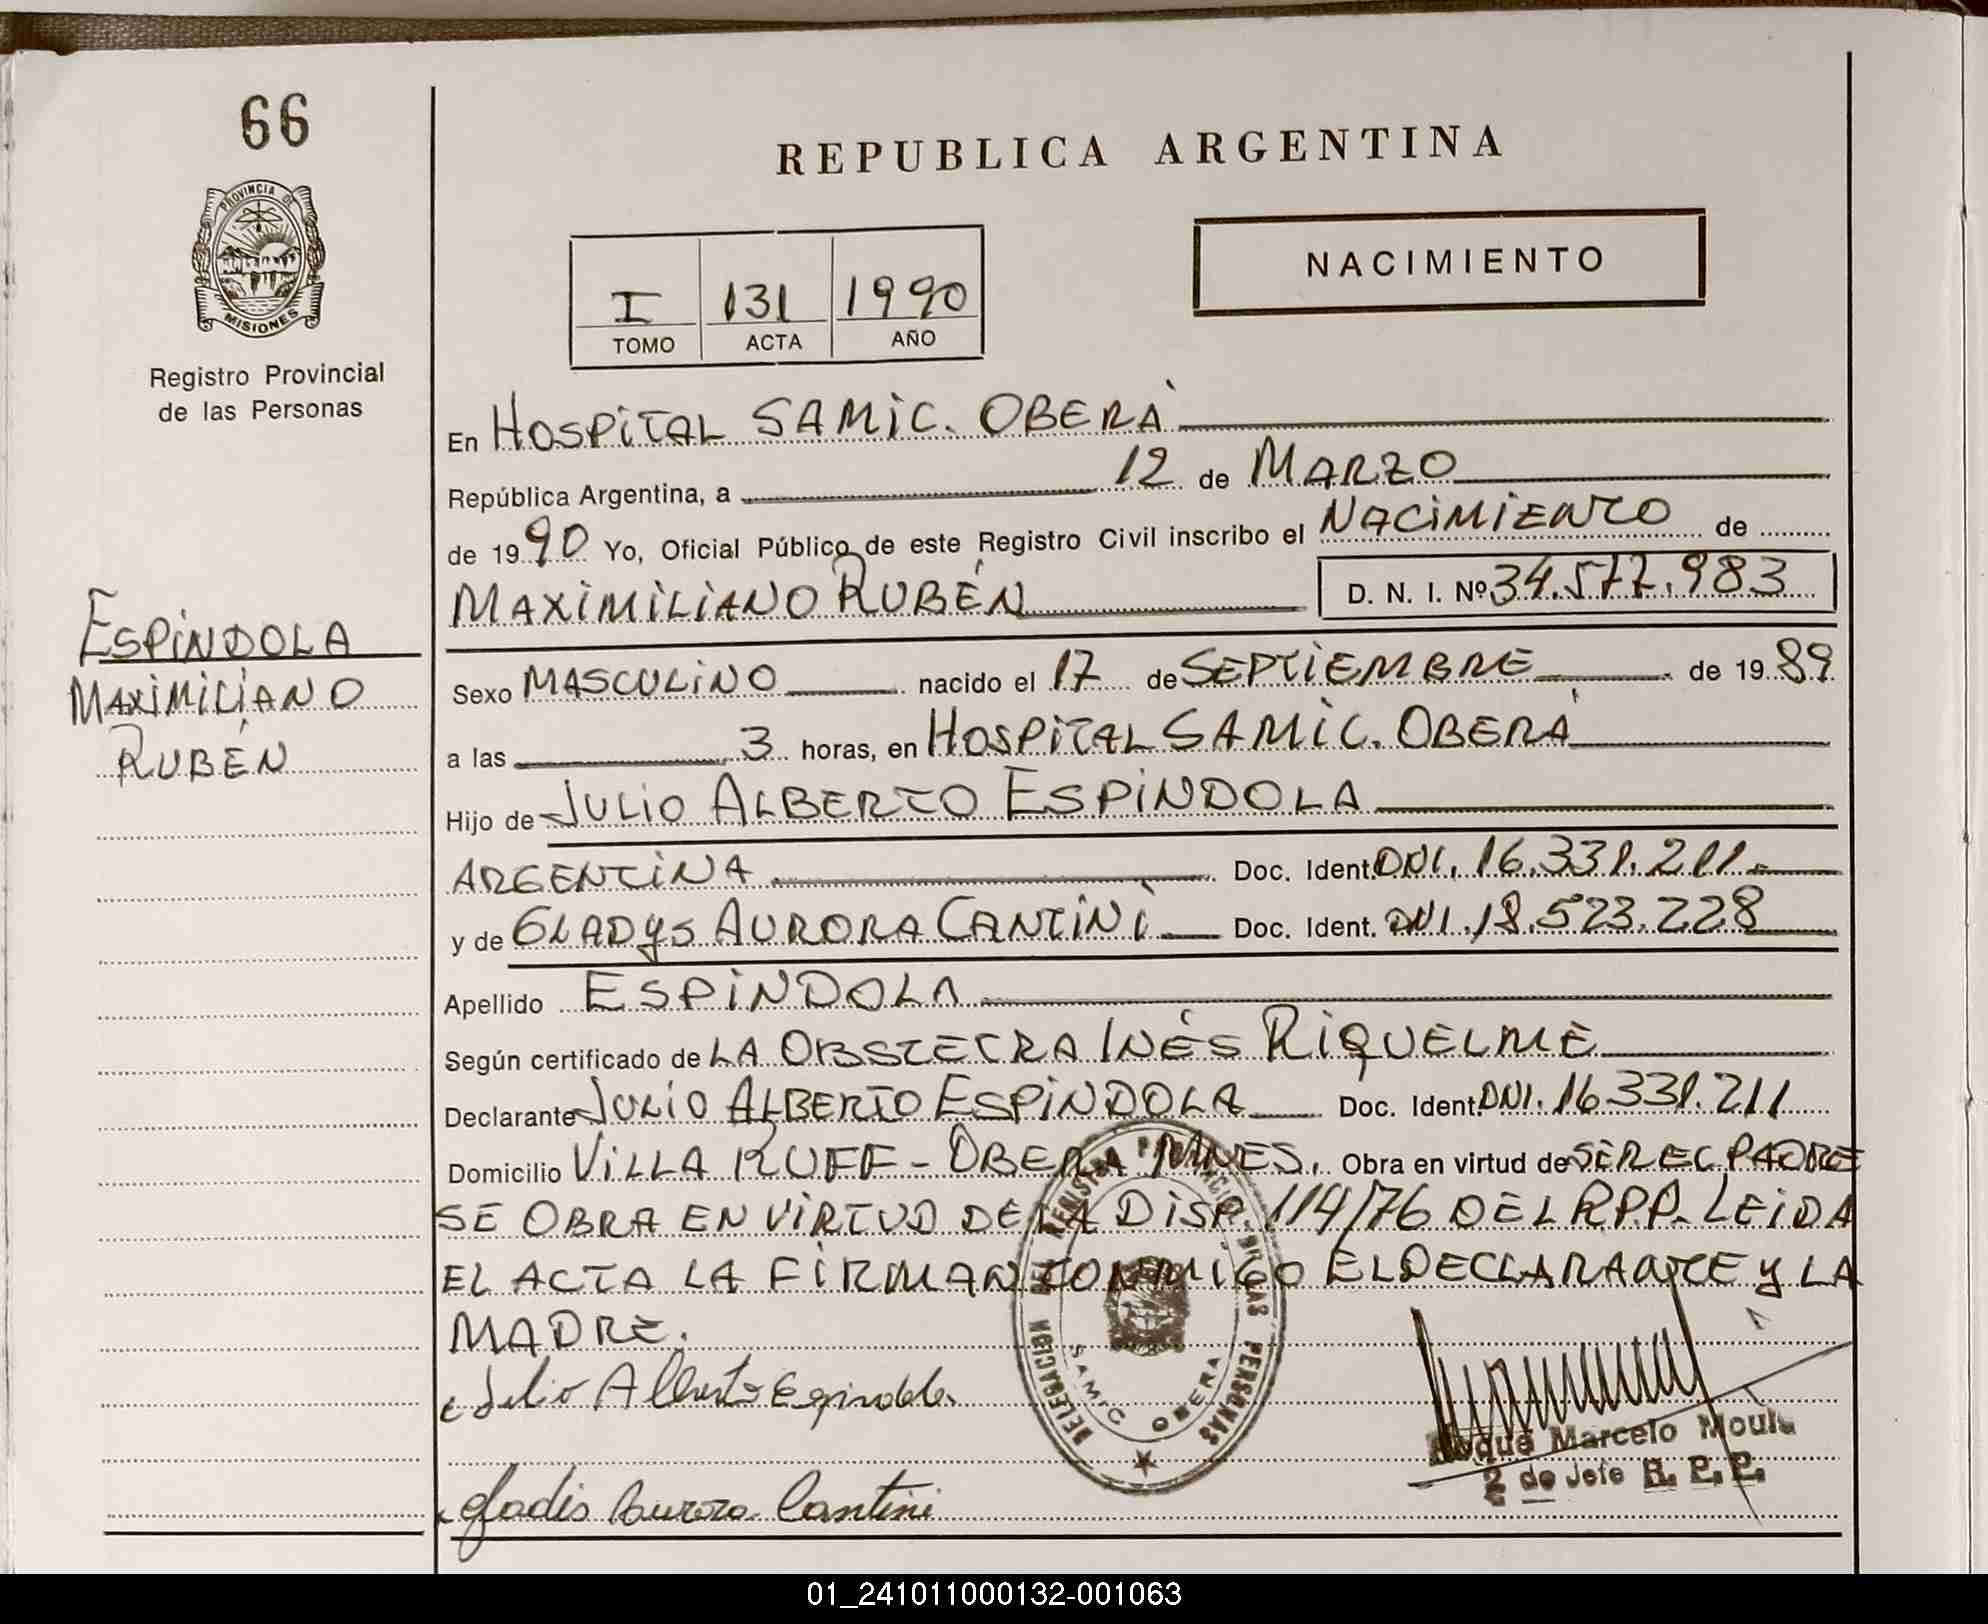 66
REPUBLICA ARGENTINA
PROVINCIA DE
MISIONES
Registro Provincial
de las Personas
NACIMIENTO
I 131 1990
TOMO ACTA AÑO
En HOSPITAL SAMIC. OBERÁ
República Argentina, a 12 de MARZO
de 1990 Yo, Oficial Público de este Registro Civil inscribo el NACIMIENTO de
MAXIMILIANO RUBÉN D. N. I. Nº 34.577.983
ESPINDOLA
MAXIMILIANO
RUBÉN
Sexo MASCULINO nacido el 17 de SEPTIEMBRE de 1989
a las 3 horas, en HOSPITAL SAMIC. OBERÁ
Hijo de JULIO ALBERTO ESPINDOLA
ARGENTINA Doc. Ident. DNI. 16.331.211
y de GLADYS AURORA CANTINI Doc. Ident. DNI. 18.523.228
Apellido ESPINDOLA
Según certificado de LA OBSTETRA INÉS RIQUELME
Declarante JULIO ALBERTO ESPINDOLA Doc. Ident. DNI. 16.331.211
Domicilio VILLA RUFF - OBERA MNES. Obra en virtud de SER EL PADRE
SE OBRA EN VIRTUD DE LA DISP. 114/76 DEL R.P.P. LEIDA
EL ACTA LA FIRMAN CONMIGO EL DECLARANTE Y LA
MADRE.
Julio Alberto Espindola
Gladis Aurora Cantini
DELEGACION DEL REGISTRO PROVINCIAL DE LAS PERSONAS
SAMIC OBERA
Roque Marcelo
2 do Jefe R. P. P.
01_241011000132-001063